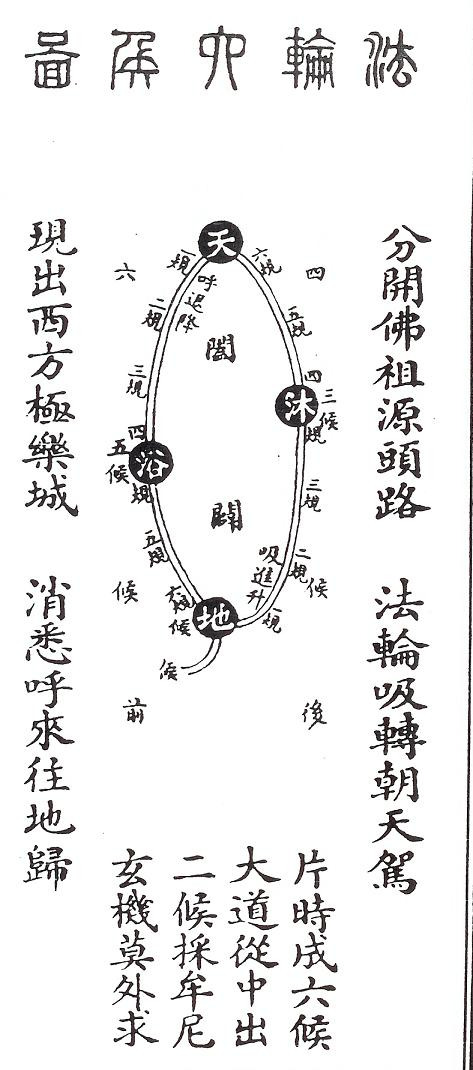 法輪六候圖
分開佛祖源頭路 法輪吸轉朝天駕
四
六規
五規
四規
沐
三候
三規
二規
候
一規
吸進升
後
天
闔
闢
地
六
一規
呼退降
二規
三規
四規
浴
五候
五規
候
六規
候
候
前
片時成六候
大道從中出
二候採牟尼
玄機莫外求
現出西方極樂城 消悉呼來往地歸